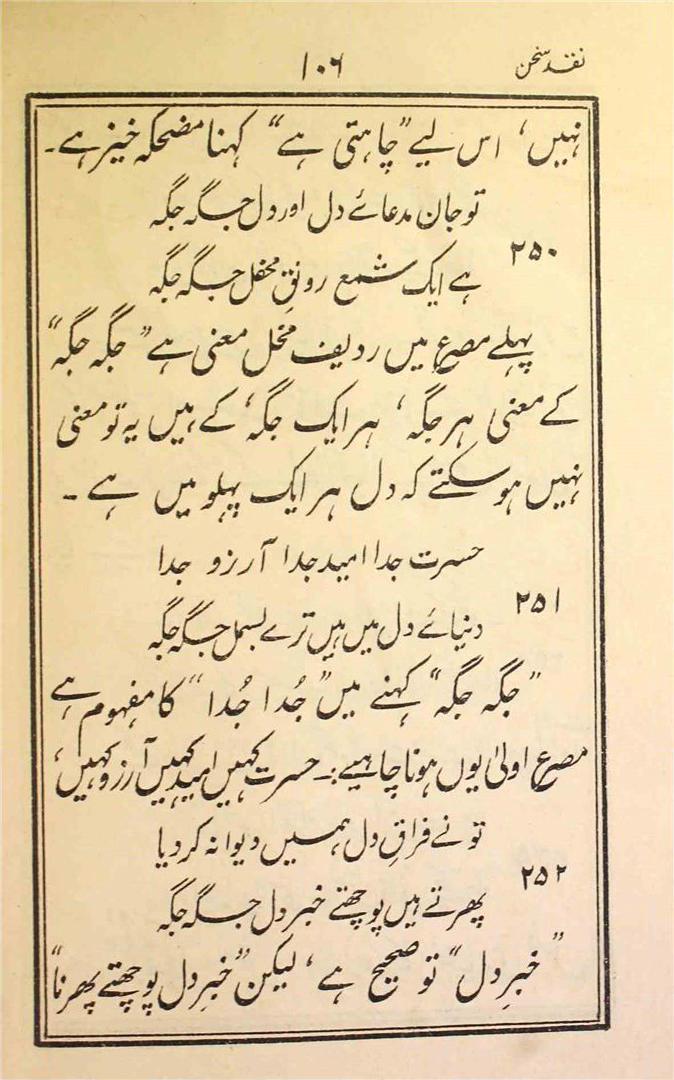 نقد سخن
۱۰۶
نہیں، اس لیے ”چاہتی ہے“ کہنا مضحکہ خیز ہے۔
تو جان مدعائے دل اور دل جگہ جگہ
۲۵۰
ہے ایک شمع رونقِ محفل جگہ جگہ
پہلے مصرع میں ردیف مخل معنی ہے ”جگہ جگہ“
کے معنی ہر جگہ، ہر ایک جگہ، کے ہیں یہ تو معنی
نہیں ہو سکتے کہ دل ہر ایک پہلو میں ہے۔
حسرت جدا امید جدا آرزو جدا
۲۵۱
دنیائے دل میں ہیں ترے بسمل جگہ جگہ
”جگہ جگہ“ کہنے میں ”جُدا جُدا“ کا مفہوم ہے
مصرع اولیٰ یوں ہونا چاہیے:۔ حسرت کہیں امید کہیں آرزو کہیں،
تو نے فراقِ دل ہمیں دیوانہ کر دیا
۲۵۲
پھرتے ہیں پوچھتے خبر دل جگہ جگہ
”خبرِ دل“ تو صحیح ہے، لیکن ”خبرِ دل پوچھتے پھرنا“